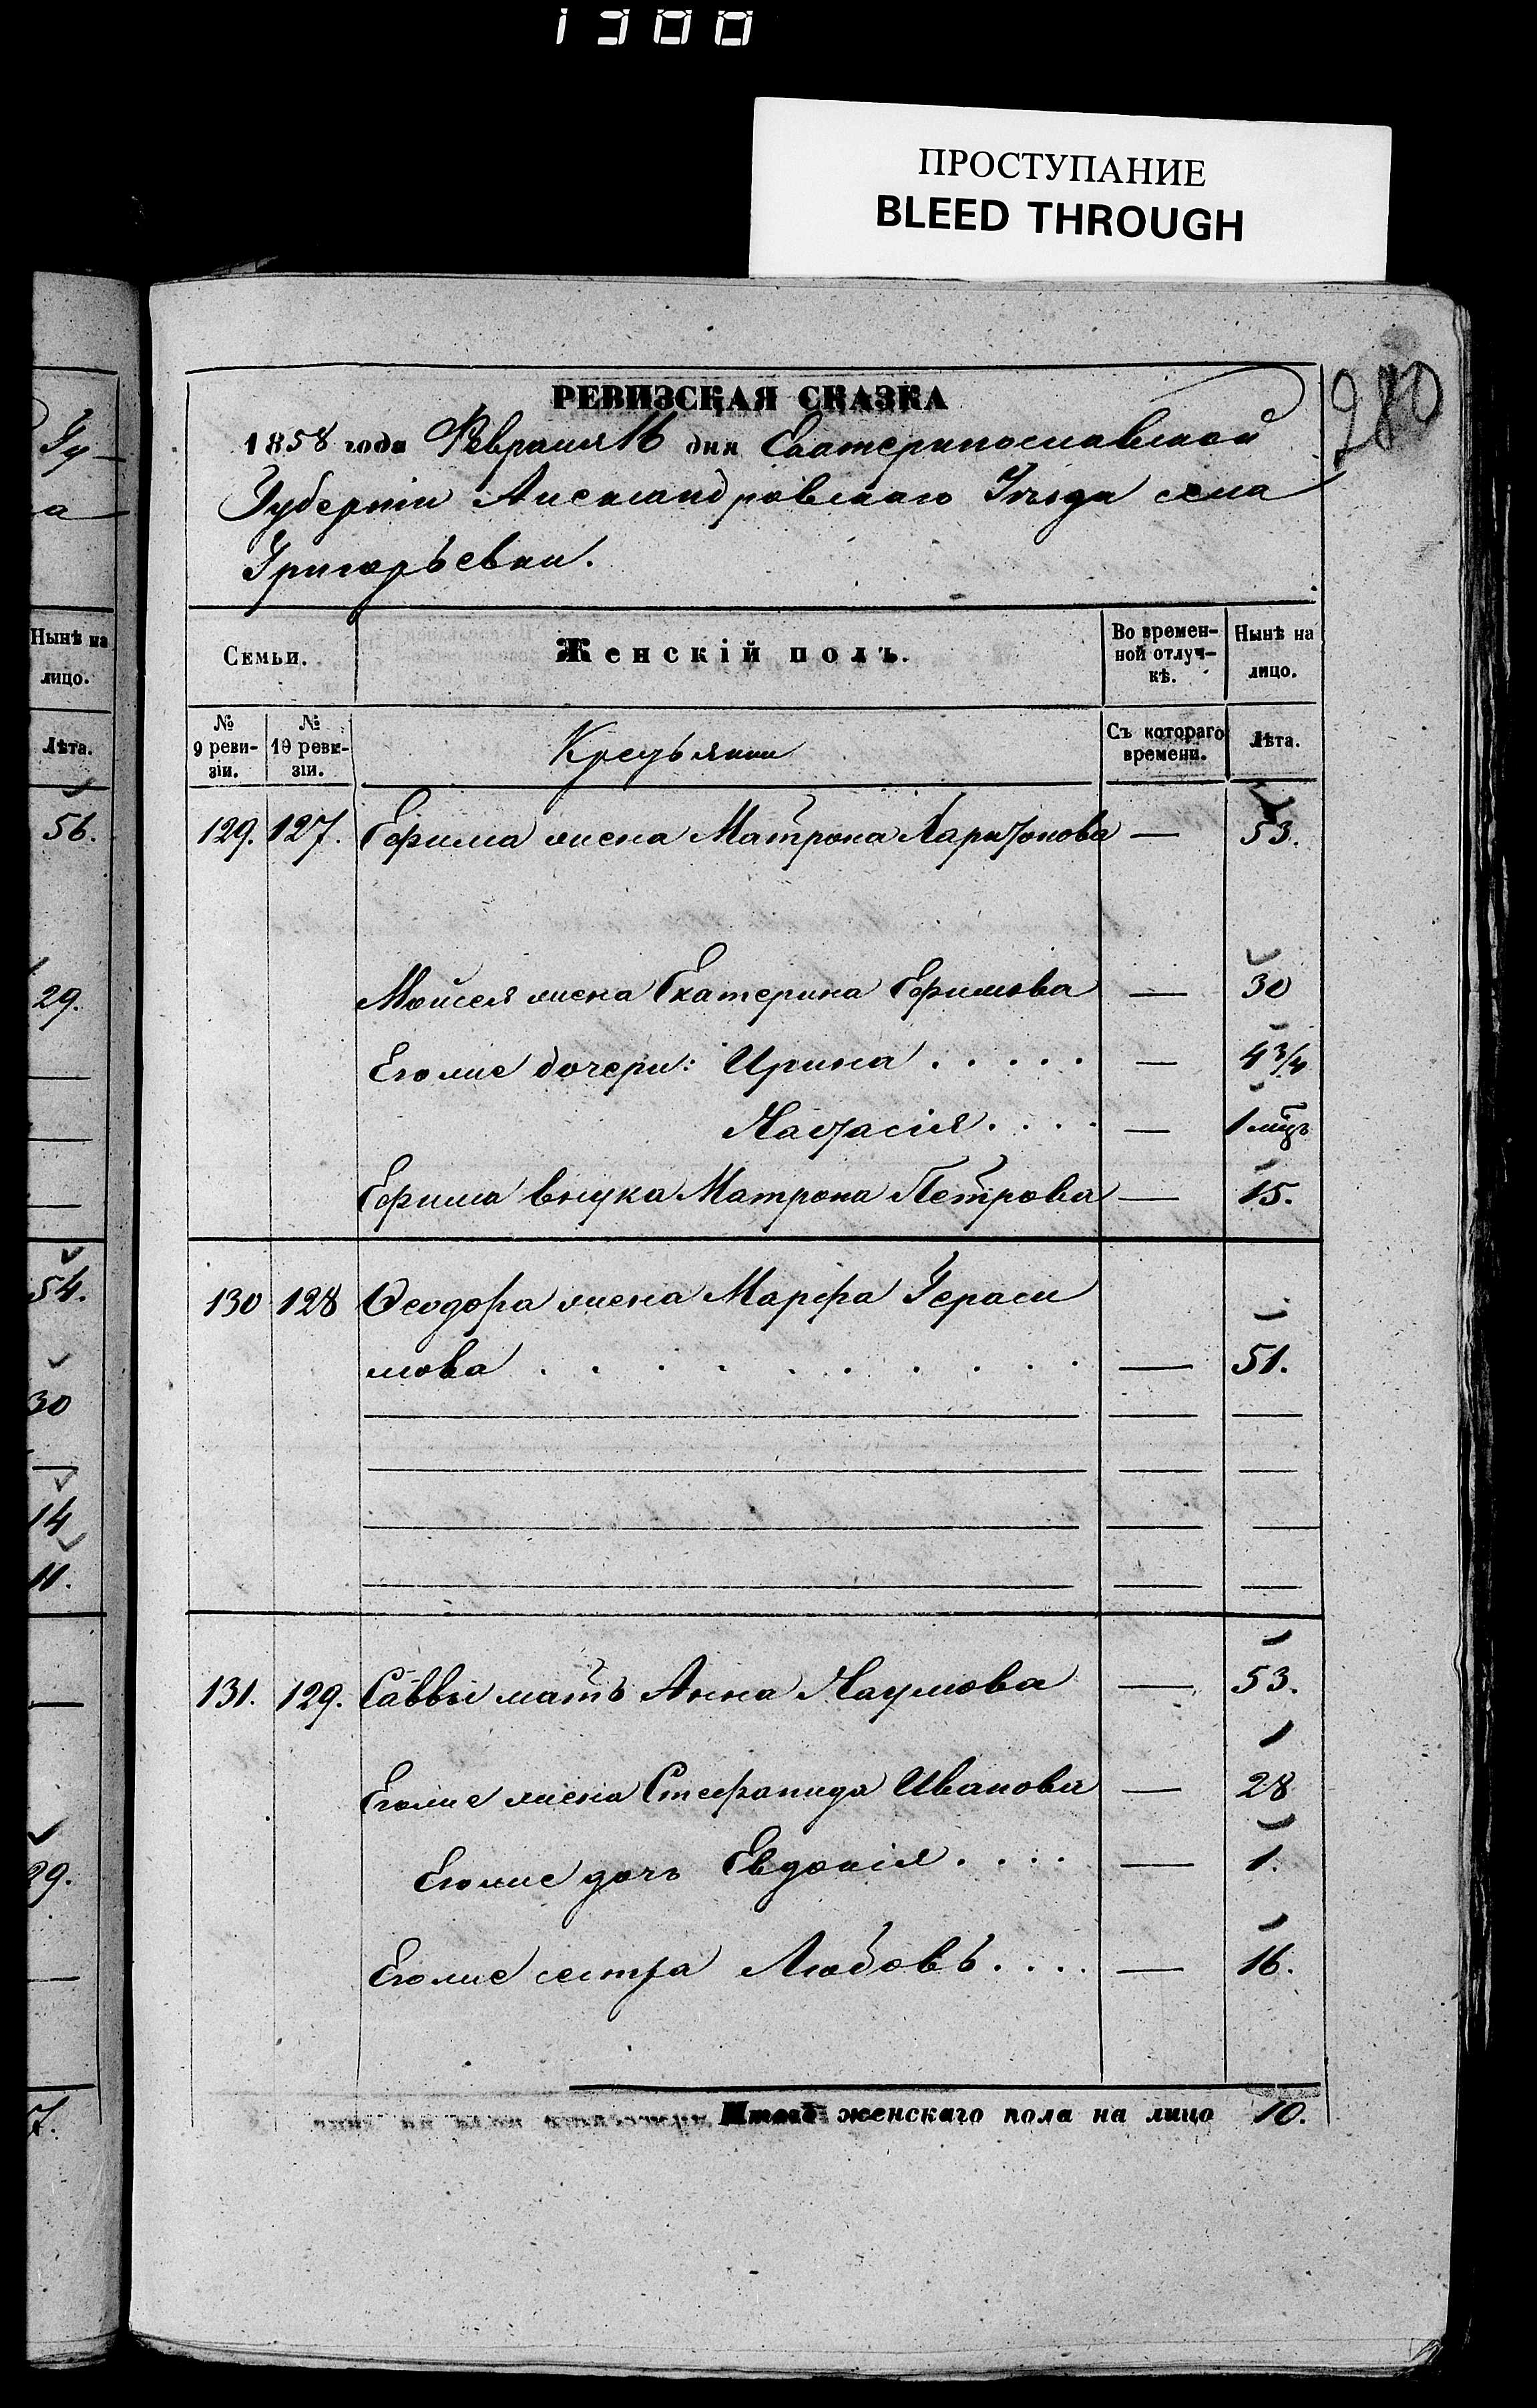 1300
ПРОСТУПАНИЕ
BLEED THROUGH
280
РЕВИЗСКАЯ СКАЗКА
1858 года Февраля 16 дня Екатеринославской
Губерніи Александровскаго Уѣзда села
Григорьевки.
Семьи.
Женскій полъ.
Во времен-
ной отлуч-
кѣ.
Нынѣ на
лицо.
№
9 реви-
зіи.
№
10 реви-
зіи.
Крестьяне
Съ котораго
времени.
Лѣта.
129. 127. Ефима жена Матрона Харитонова — 53.
Мойсея жена Екатерина Ефимова — 30
Его же дочери: Ирина . . . . . — 4 3/4
Настасія . . . . — 1 мцъ
Ефима внука Матрона Петрова — 15.
130 128 Ѳеодора жена Марфа Гераси
мова . . . . . . . . . . — 51.
131. 129. Саввы мать Анна Наумова — 53.
Его же жена Стефанида Иванова — 28
Его же дочь Евдокія . . . . — 1.
Его же сестра Любовь . . . . — 16.
Итого женскаго пола на лицо 10.
Гу-
а
Нынѣ на
лицо.
Лѣта.
56.
29.
54.
30
14
11.
29.
7.